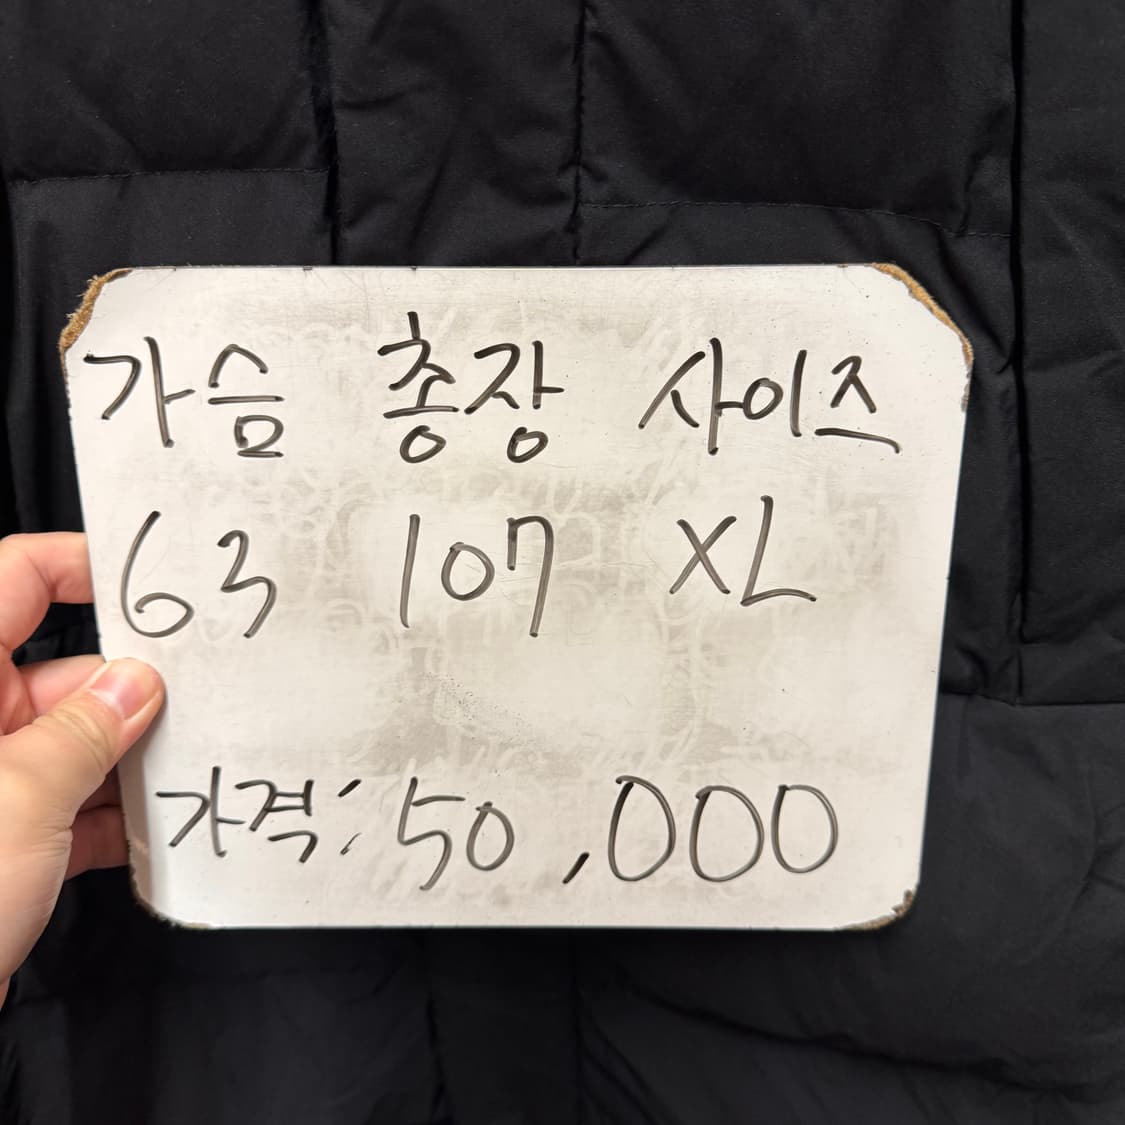 가슴 총장 사이즈
63 107 XL
가격: 50,000